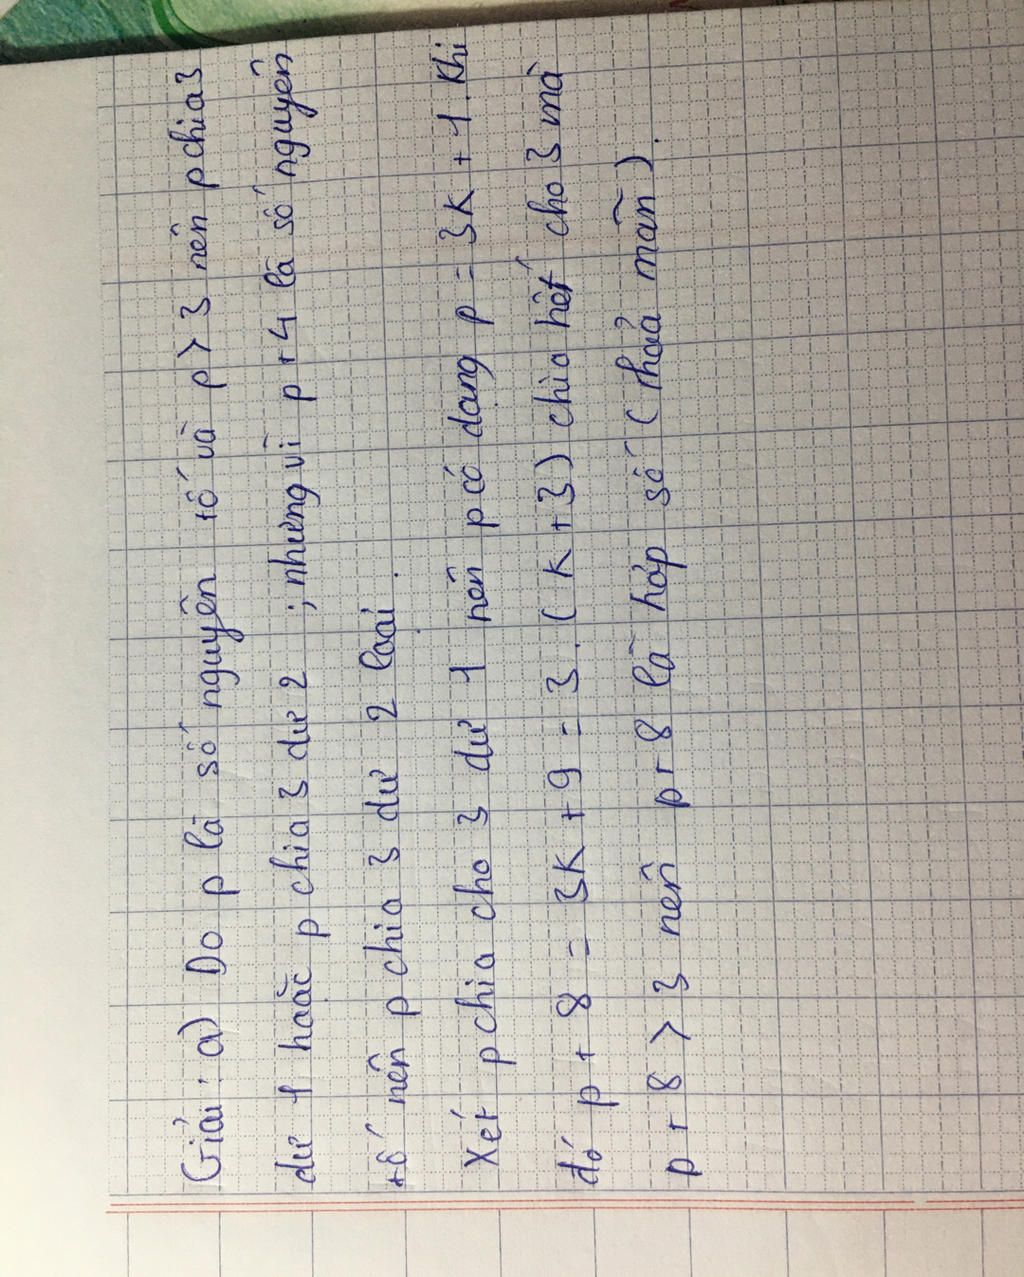 Giải: a) Do p là số nguyên tố và p > 3 nên p chia 3
dư 1 hoặc p chia 3 dư 2 ; nhưng vì p + 4 là số nguyên
tố nên p chia 3 dư 2 loại.
Xét p chia cho 3 dư 1 nên p có dạng p = 3K + 1. Khi
đó p + 8 = 3K + 9 = 3. (K + 3) chia hết cho 3 mà
p + 8 > 3 nên p + 8 là hợp số (thỏa mãn).